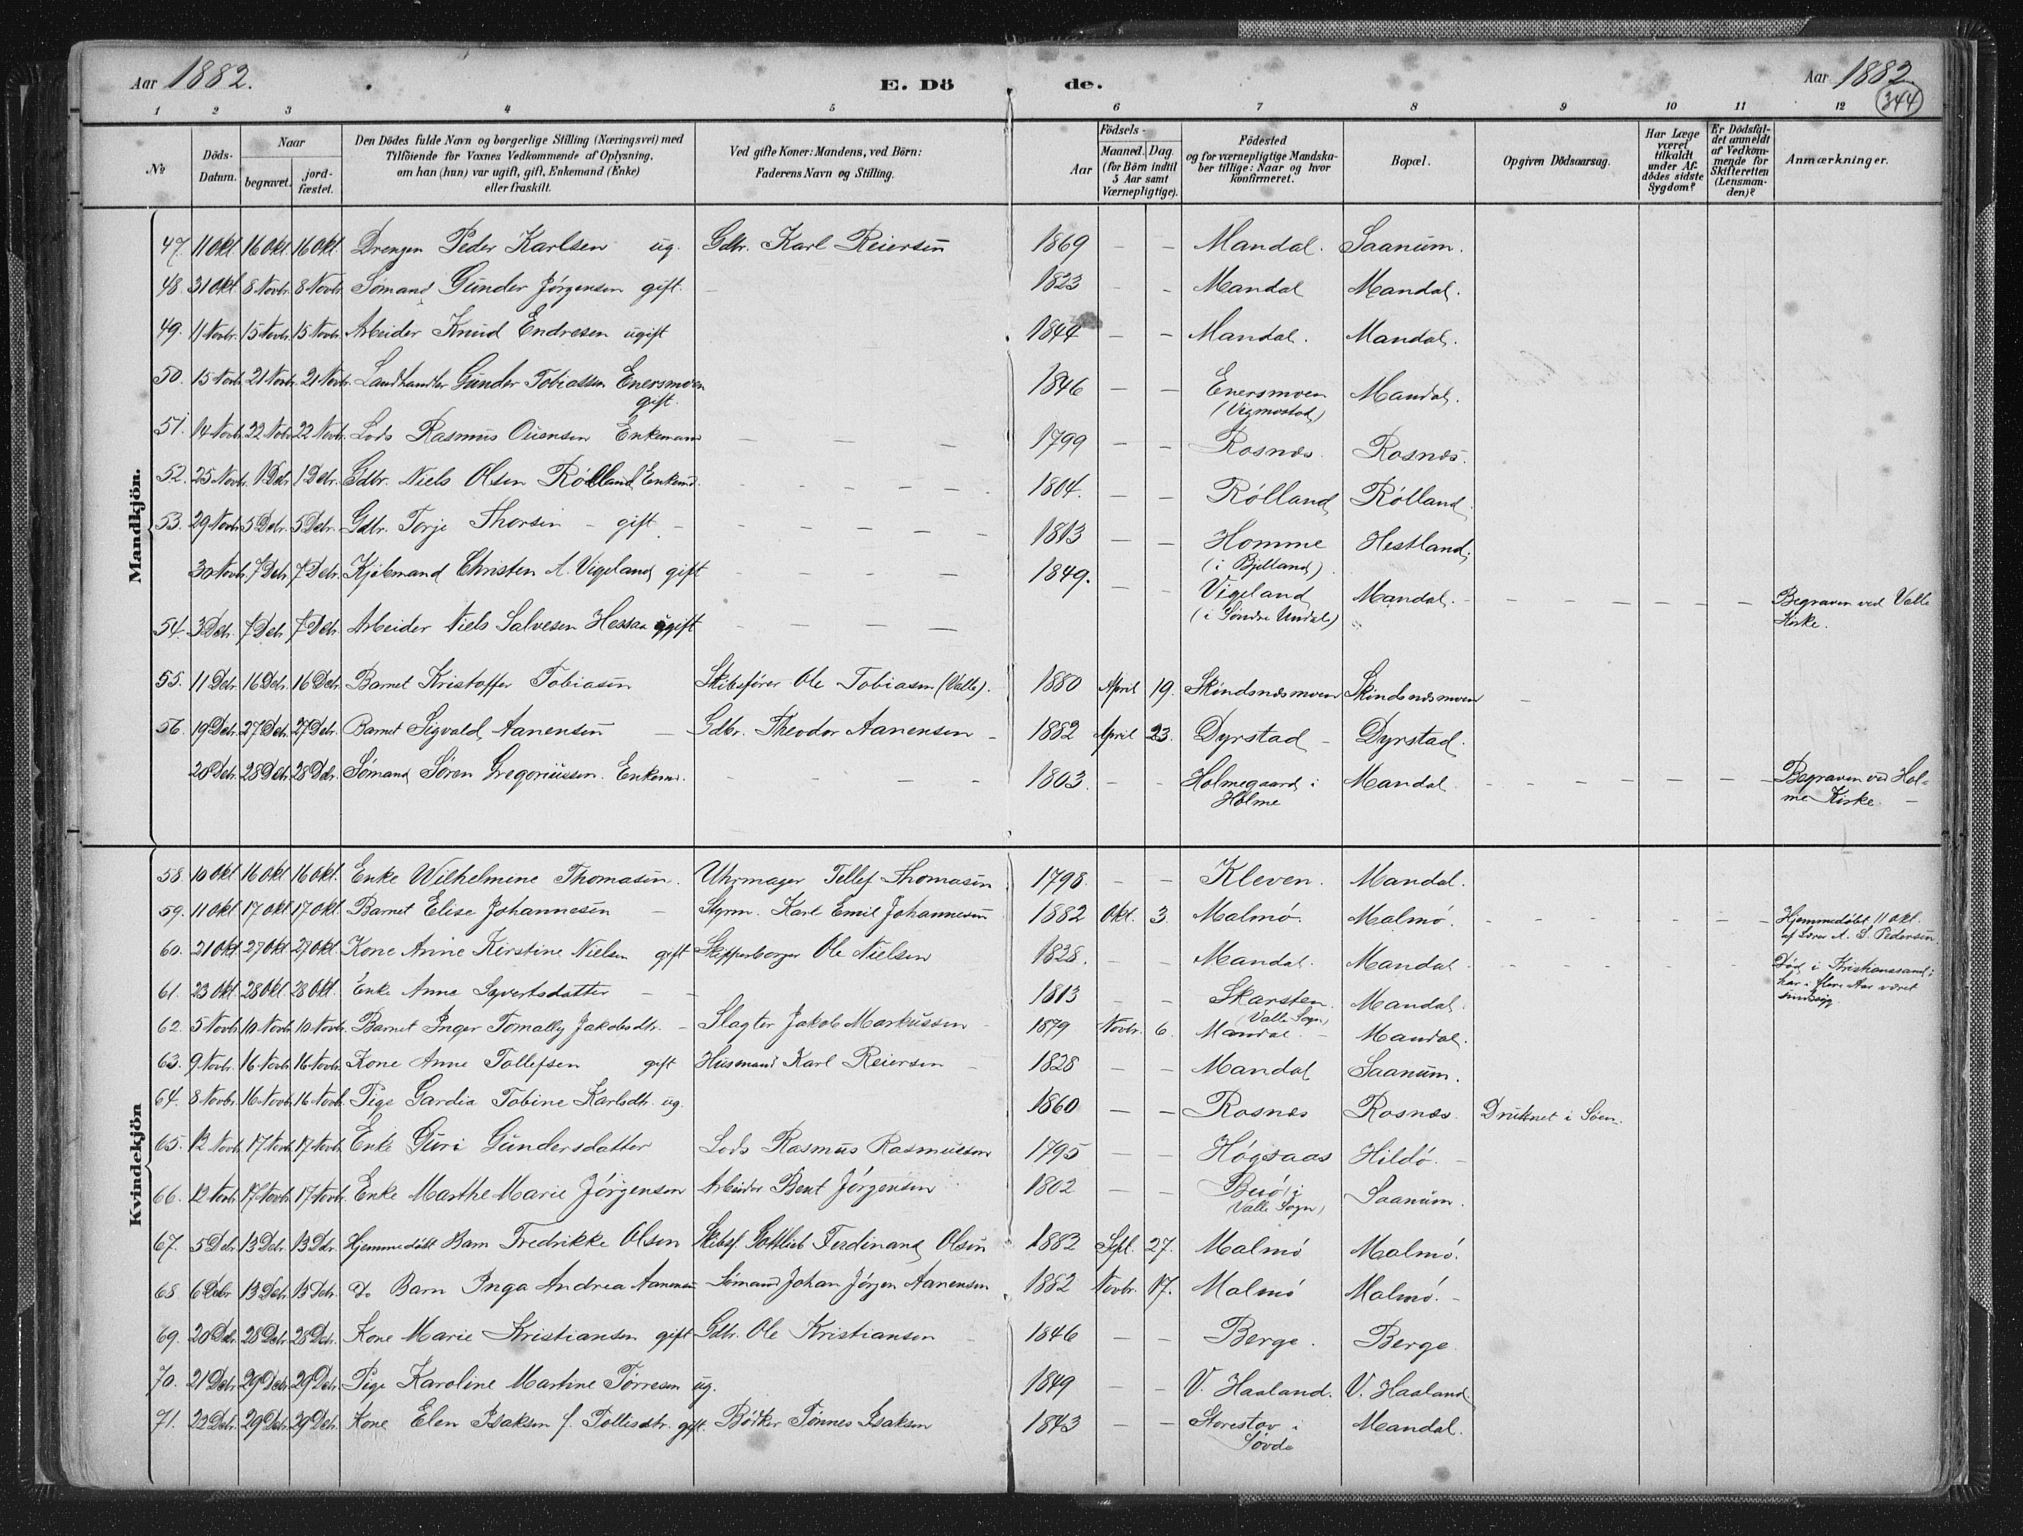 Aar 1882. E. Dö de. Aar 1882
344
1 2 3 4 5 6 7 8 9 10 11 12
№ Döds-Datum. Naar begravet. jordfæstet. Den Dödes fulde Navn og borgerlige Stilling (Næringsvei) med Tilföiende for Voxnes Vedkommende af Oplysning, om han (hun) var ugift, gift, Enkemand (Enke) eller fraskilt. Ved gifte Koner: Mandens, ved Börn: Faderens Navn og Stilling. Födsels- Aar Maaned. Dag. (for Börn indtil 5 Aar samt Værnepligtige). Födested og for værnepligtige Mandskaber tillige: Naar og hvor konfirmeret. Bopæl. Opgiven Dödsaarsag. Har Læge været tilkaldt under Afdödes sidste Sygdom? Er Dödsfaldet anmeldt af Vedkommende for Skifteretten (Lensmanden)? Anmærkninger.
Mandkjön.
47. 11 Okt 16 Okt. 16 Okt. Drengen Peder Karlsen ug. Gdbr. Karl Reiersen 1869 – – Mandal. Saanum.
48. 31 Okt 8 Novbr. 8 Novbr. Sømand Gunder Jørgensen gift. – 1823 – – Mandal Mandal.
49. 11 Novbr. 15 Novbr. 15 Novbr. Arbeider Knud Endresen ugift 1844 – – Mandal. Mandal.
50. 15 Novbr. 21 Novbr. 21 Novbr. Landhandler Gunder Tobiassen Enersmoen gift. 1846 Enersmoen (Vigmostad) Mandal.
51. 14 Novbr. 22 Novbr. 22 Novbr. Lods Rasmus Ouensen Enkemand – – – 1799 – – Rosnæs. Rosnæs.
52. 25 Novbr. 1 Debr. 1 Debr. Gdbr. Niels Olsen Rølland Enkemd. – – – – – 1804. – – Rølland Rølland.
53. 29 Novbr. 5 Debr. 5 Debr. Gdbr. Torje Thorsen – gift. – – – – – 1813 – – Homme (i Bjelland). Hestland.
30 Novbr. 7 Debr. 7 Debr. Kjøbmand Christen A. Vigeland gift – – – – 1849. – – Vigeland (i Søndre Undal) Mandal. – – – – – – Begraven ved Valle Kirke.
54. 3 Debr. 7 Debr. 7 Debr. Arbeider Niels Salvesen Hessaa ugift – – – –
55. 11 Debr. 16 Debr. 16 Debr. Barnet Kristoffer Tobiasen Skibsfører Ole Tobiasen (Valle). 1880 April 19. Skindsnæsmoen Skindsnæsmoen –
56. 19 Debr. 27 Debr. 27 Debr. Barnet Sigvald Aanensen – Gdbr. Theodor Aanensen – 1882 April 23. Dyrstad – Dyrstad.
20 Debr. 28 Debr. 28 Debr. Sømand Søren Gregoriussen. Enkemd. – – – – 1803. – – Holmegaard i Holme Mandal. – – – – – – Begraven ved Holme Kirke. –
Kvindekjön
58. 10 Okt 16 Okt 16 Okt. Enke Wilhelmine Thomasen. Uhrmager Tellef Thomasen 1798 – – Kleven. Mandal.
59. 11 Okt 17 Okt 17 Okt. Barnet Elise Johannesen – Styrm. Karl Emil Johannesen 1882 Okt. 3. Malmø. Malmø. – – – – – – Hjemmedøbt 11 Okt. af Lærer A. S. Pedersen.
60. 21 Okt 27 Okt 27 Okt. Kone Anne Kirstine Nielsen gift Skipperborger Ole Nielsen 1828. – – Mandal. Mandal. – – – – – – Død i Kristianssand; har i flere Aar været sindssyg.
61. 23 Okt 28 Okt 28 Okt. Enke Anne Syvertsdatter – – 1813 – – Skarsten (Valle Sogn) Mandal.
62. 5 Novbr. 10 Novbr. 10 Novbr. Barnet Inger Tomally Jakobsdtr. – Slagter Jakob Markussen 1879 Novbr. 6. Mandal. – Mandal.
63. 9 Novbr. 16 Novbr. 16 Novbr. Kone Anne Tollefsen gift Husmand Karl Reiersen – 1828 – – Mandal Saanum.
64. 8 Novbr. 16 Novbr. 16 Novbr. Pige Gardia Tobine Karlsdtr. ug. 1860 – – Rosnæs Rosnæs. Druknet i Søen.
65. 12 Novbr. 17 Novbr. 17 Novbr. Enke Guri Gundersdatter Lods Rasmus Rasmussen 1795 – – Høgsaas Hildø. –
66. 12 Novbr. 17 Novbr. 17 Novbr. Enke Marthe Marie Jørgensen Arbeider Bent Jørgensen 1802 – – i Valle Sogn) Saanum.
67. 5 Debr. 13 Debr. 13 Debr. Hjemmedøbt Barn Fredrikke Olsen Skibsf. Gottlieb Ferdinand Olsen 1882 Sept. 27. Malmø Malmø.
68. 6 Debr 13 Debr. 13 Debr. do Barn Inga Andrea Aanensen Sømand Johan Jørgen Aanensen 1882 Novbr. 17. Malmø Malmø. –
69. 20 Debr. 28 Debr. 28 Debr. Kone Marie Kristiansen gift Gdbr. Ole Kristiansen 1846 – – Berge. Berge.
70. 21 Debr. 29 Debr. 29 Debr. Pige Karoline Martine Tørresen ug. 1849 – – V. Haaland. V. Haaland
71. 22 Debr. 29 Debr. 29 Debr. Kone Elen Isaksen f. Tollisdtr. gift. Bødker Tønnes Isaksen 1843 – – Storestov i Søvde Mandal.